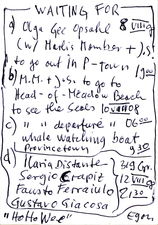 WAITING FOR
a) Olga Gee Opsahl 8 VIII 08
(w/ Merlis Member + J.S.
to go out in P-town 1900
b) M.M. + J.S. to go to
Head-of-Meadow Beach
to see the Seals 10 VIII 08
c) " " departure 0600
whale watching boat
Provincetown 930
d) Ilaria Distante
Sergio Crapiz 12 VIII 08
Fausto Ferraiulo 2130
Gustavo Giacosa
"HoHo Wee" Egon